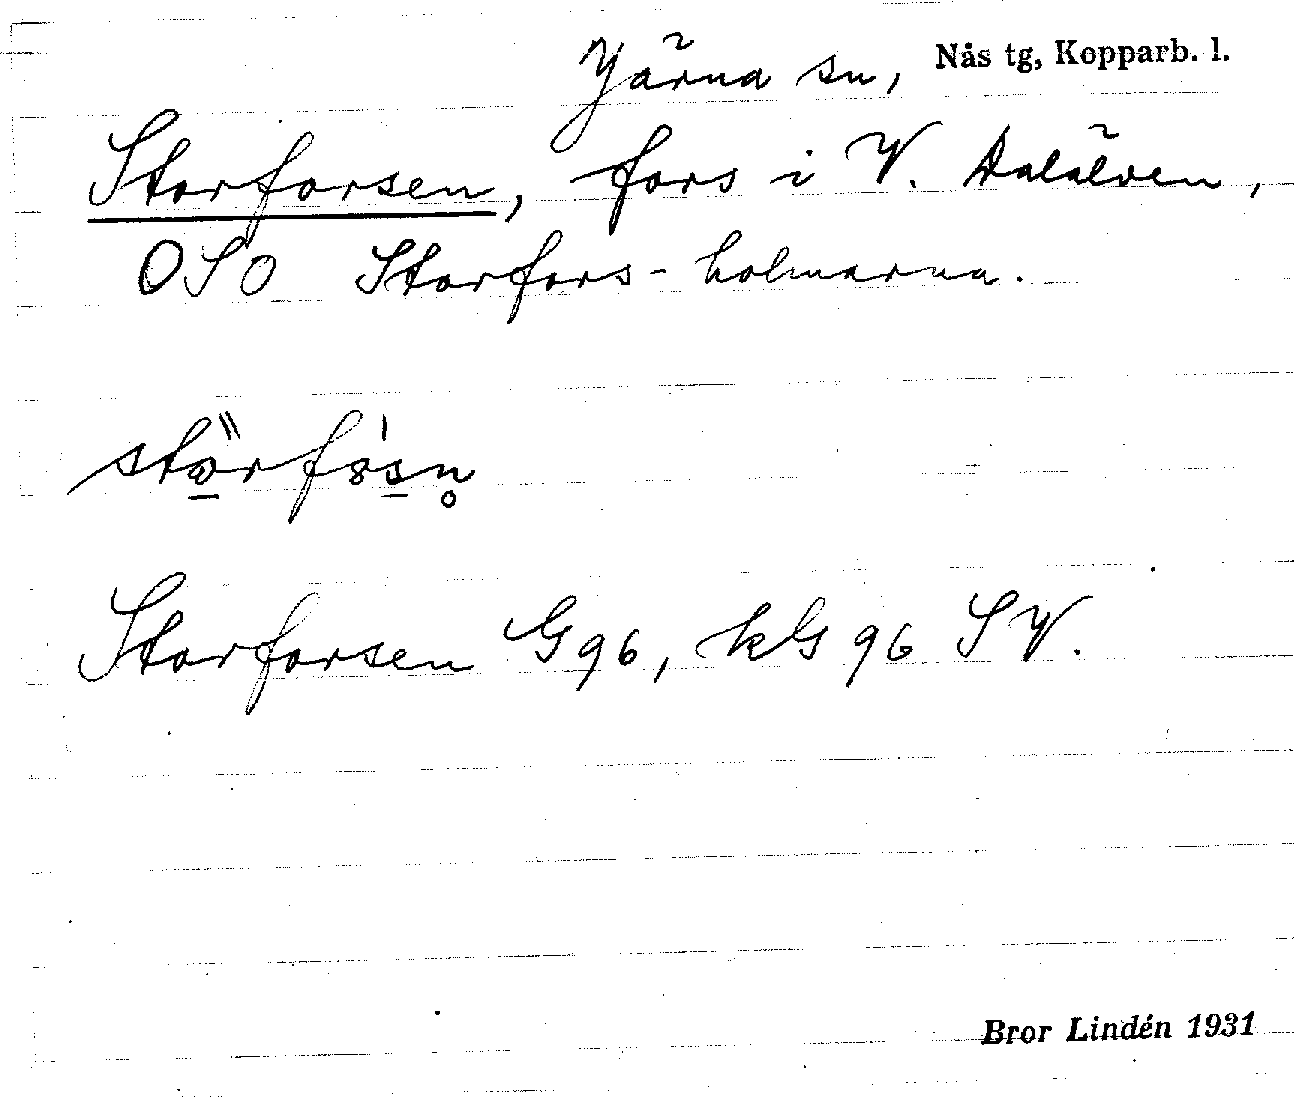 Järna sn, Nås tg, Kopparb. l.
Storforsen, fors i V. Dalälven,
OSO Storfors-holmarna.
Storforsen G96, kG 96 SV.
Bror Lindén 1931